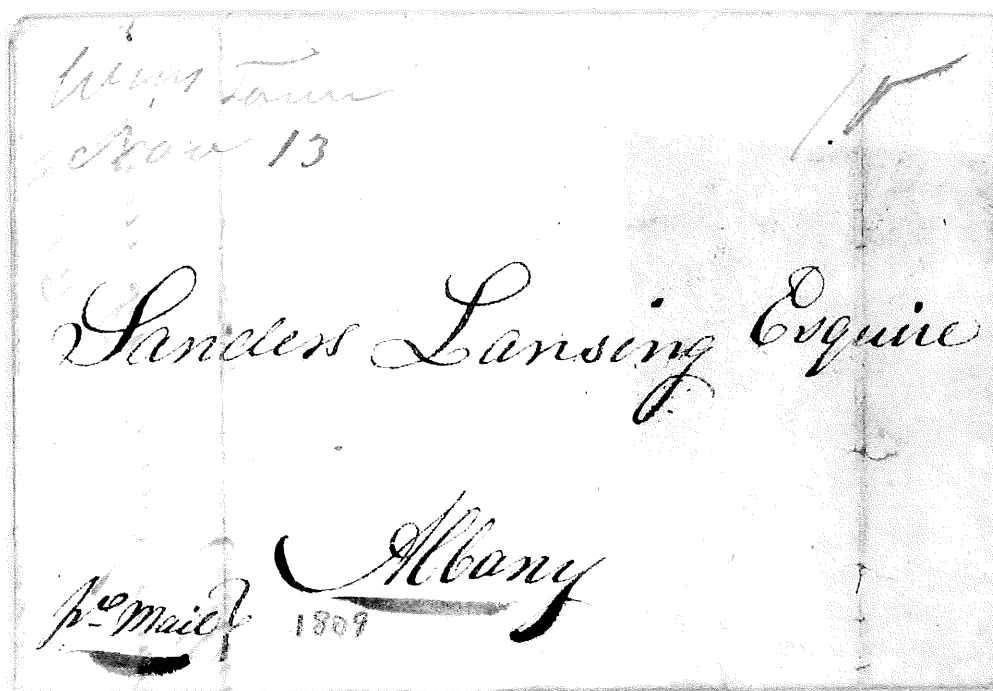 Town
Nov 13
Sanders Lansing Esquire
Albany
pro Mail
1809